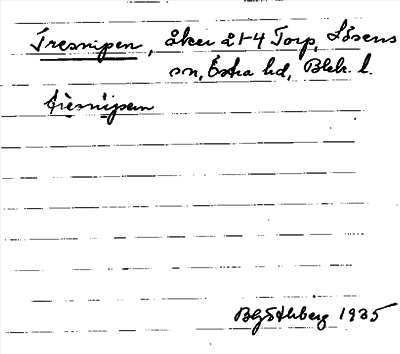 Tresnipen, åker å 1-4 Torp, Lösens
sn, Östra hd, Blek. l.
trèsni̇̀pen
1935